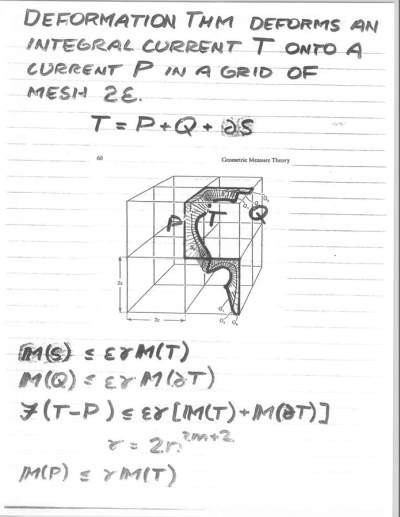 DEFORMATION THM DEFORMS AN
INTEGRAL CURRENT T ONTO A
CURRENT P IN A GRID OF
MESH 2ε.
T = P + Q + ∂S
60 Geometric Measure Theory
P T Q
2ε
2ε
M(S) ≤ εγM(T)
M(Q) ≤ εγM(∂T)
𝓕(T-P) ≤ εγ[M(T)+M(∂T)]
γ = 2n^{2m+2}
M(P) ≤ γM(T)